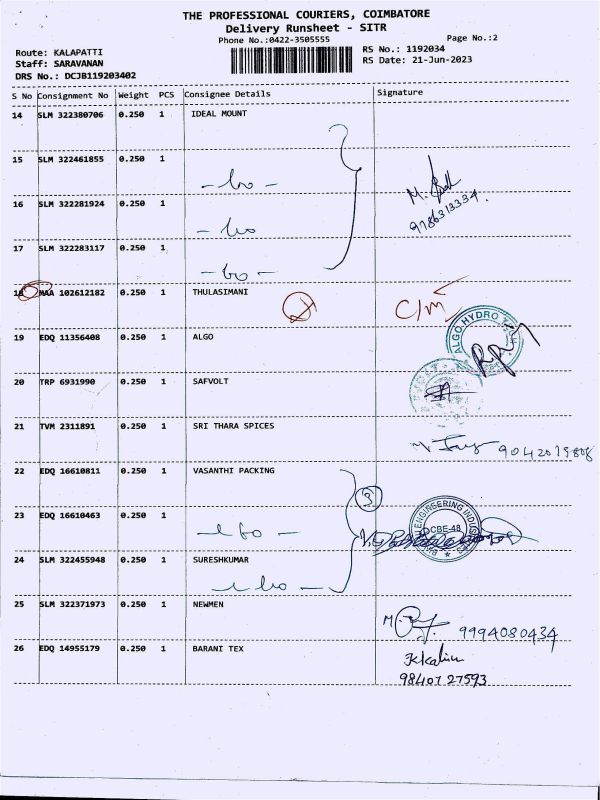 THE PROFESSIONAL COURIERS, COIMBATORE
Delivery Runsheet - SITR
Phone No.:0422-3505555
Page No.:2
Route: KALAPATTI
RS No.: 1192034
Staff: SARAVANAN
RS Date: 21-Jun-2023
DRS No.: DCJB119203402
S No Consignment No Weight PCS Consignee Details Signature
14 SLM 322380706 0.250 1 IDEAL MOUNT
15 SLM 322461855 0.250 1
16 SLM 322281924 0.250 1
9786313334
17 SLM 322283117 0.250 1
18 MAA 102612182 0.250 1 THULASIMANI
C/M
19 EDQ 11356408 0.250 1 ALGO
ALGO HYDRO
20 TRP 6931990 0.250 1 SAFVOLT
21 TVM 2311891 0.250 1 SRI THARA SPICES
22 EDQ 16610811 0.250 1 VASANTHI PACKING
3
23 EDQ 16610463 0.250 1
ENGINGERING
CBE-48
24 SLM 322455948 0.250 1 SURESHKUMAR
25 SLM 322371973 0.250 1 NEWMEN
9994080434
26 EDQ 14955179 0.250 1 BARANI TEX
98407 27593